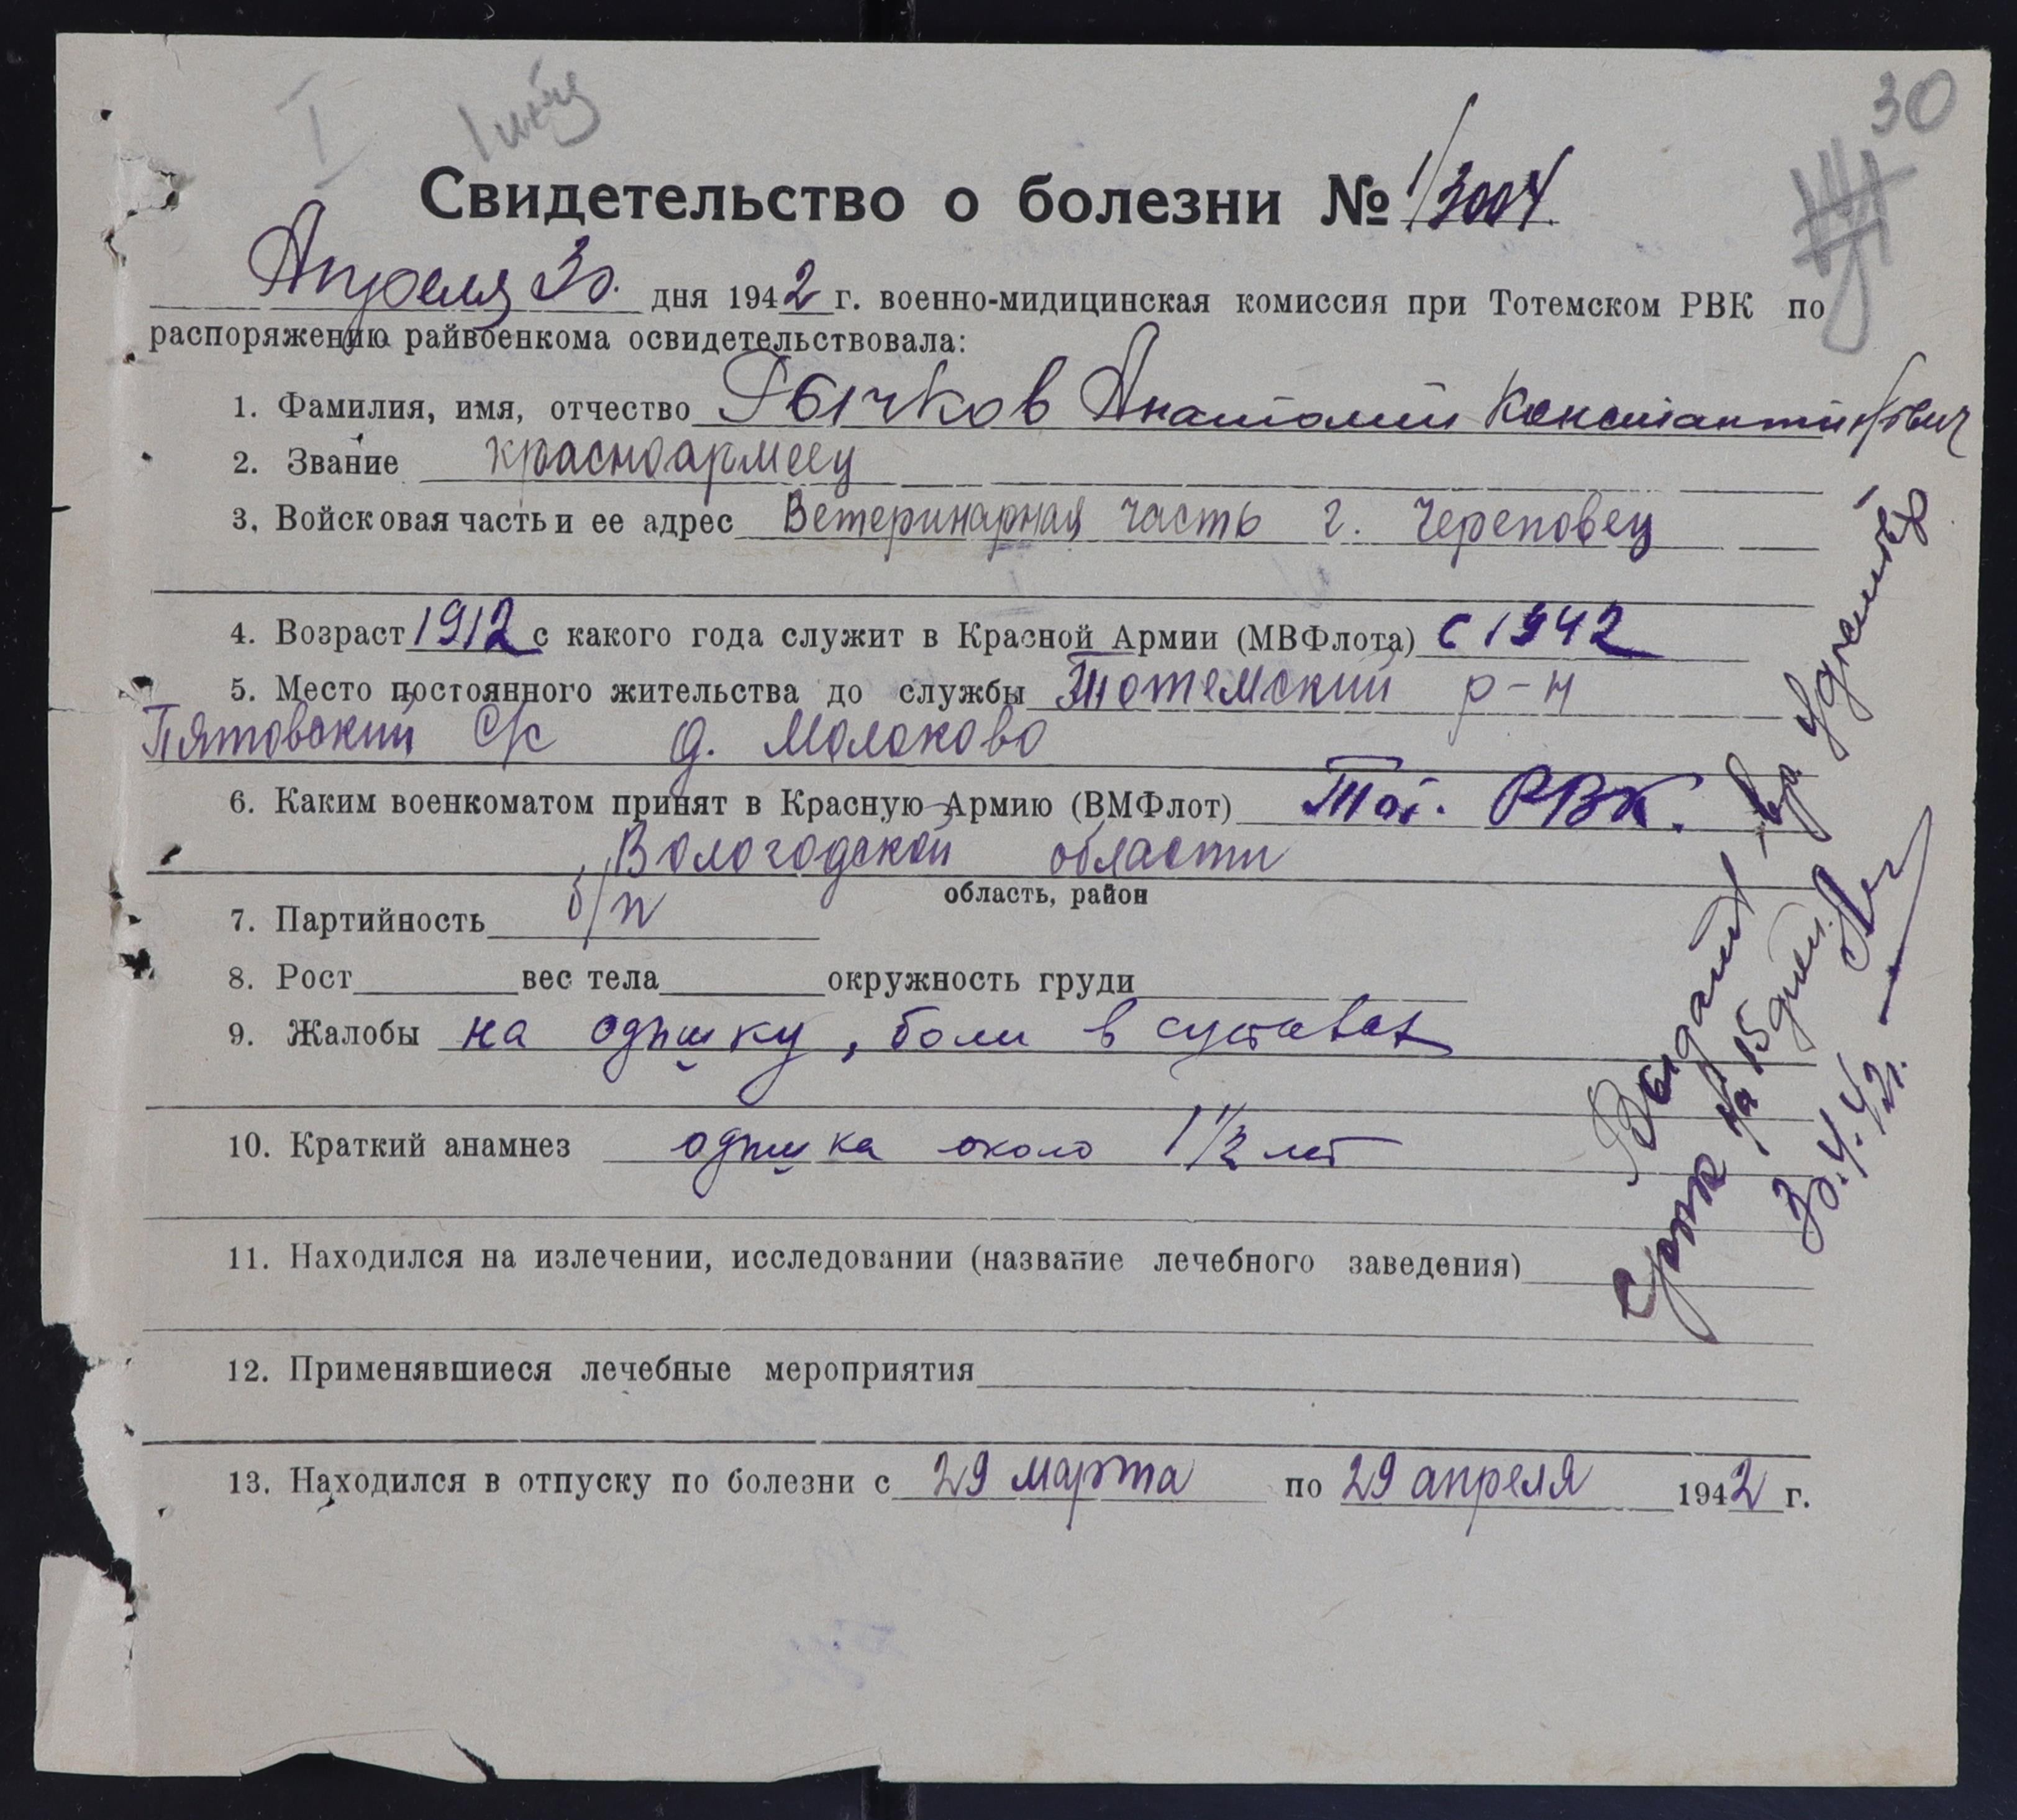 30
I
Свидетельство о болезни № 1/3004
Апреля 30. дня 1942 г. военно-мидицинская комиссия при Тотемском РВК по
распоряжению райвоенкома освидетельствовала:
1. Фамилия, имя, отчество Рычков Анатолий Константинович
2. Звание красноармеец
3. Войсковая часть и ее адрес Ветеринарная часть г. Череповец
4. Возраст 1912 с какого года служит в Красной Армии (МВФлота) с 1942
5. Место постоянного жительства до службы Тотемский р-н
Пятовский с/с д. Молоково
6. Каким военкоматом принят в Красную Армию (ВМФлот) Тот. РВК.
Вологодской области
область, район
7. Партийность б/п
8. Рост вес тела окружность груди
9. Жалобы на одышку, боли в суставах
10. Краткий анамнез одышка около 1 1/2 лет
11. Находился на излечении, исследовании (название лечебного заведения)
12. Применявшиеся лечебные мероприятия
13. Находился в отпуску по болезни с 29 марта по 29 апреля 1942 г.
Выдать вр. удостов
на 15 дней.
30.4.42г.